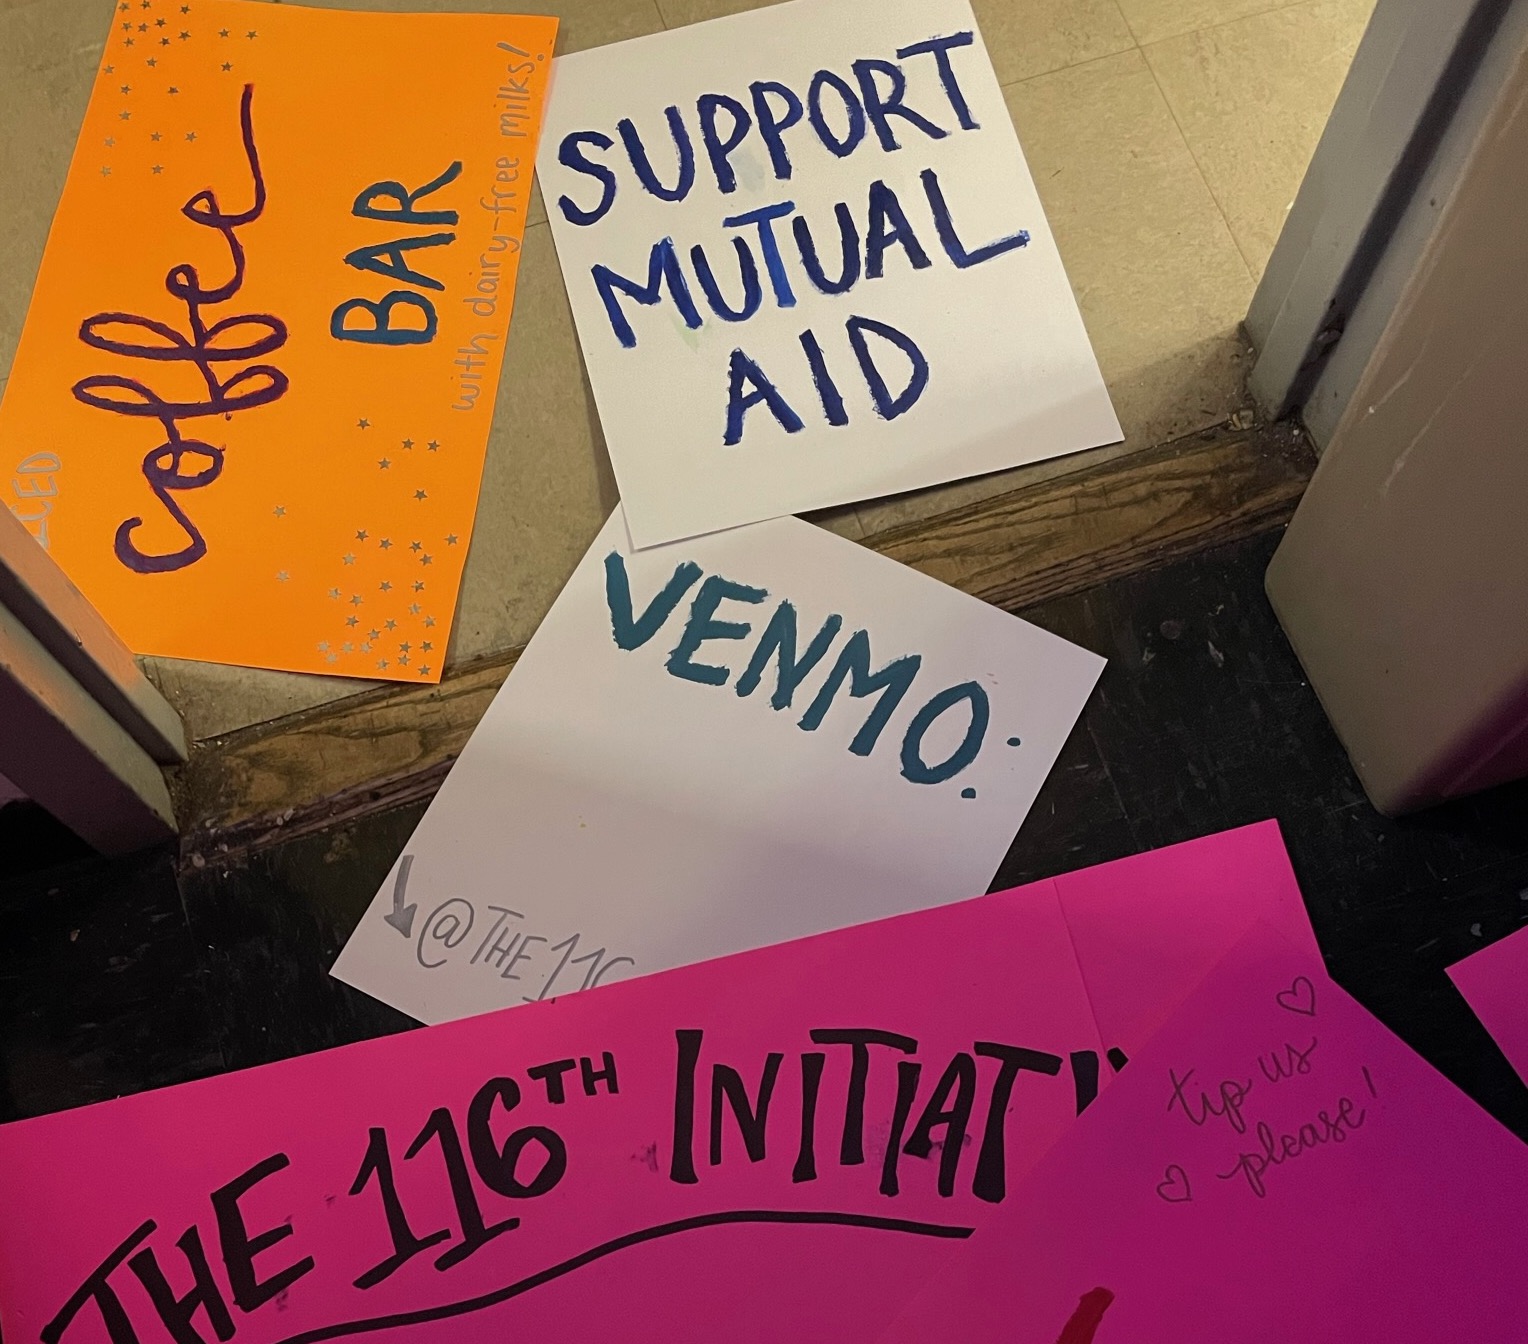 coffee
BAR
with dairy-free milks!
ICED
SUPPORT
MUTUAL
AID
VENMO:
@THE 116
THE 116TH INITIATI
tip us
please!